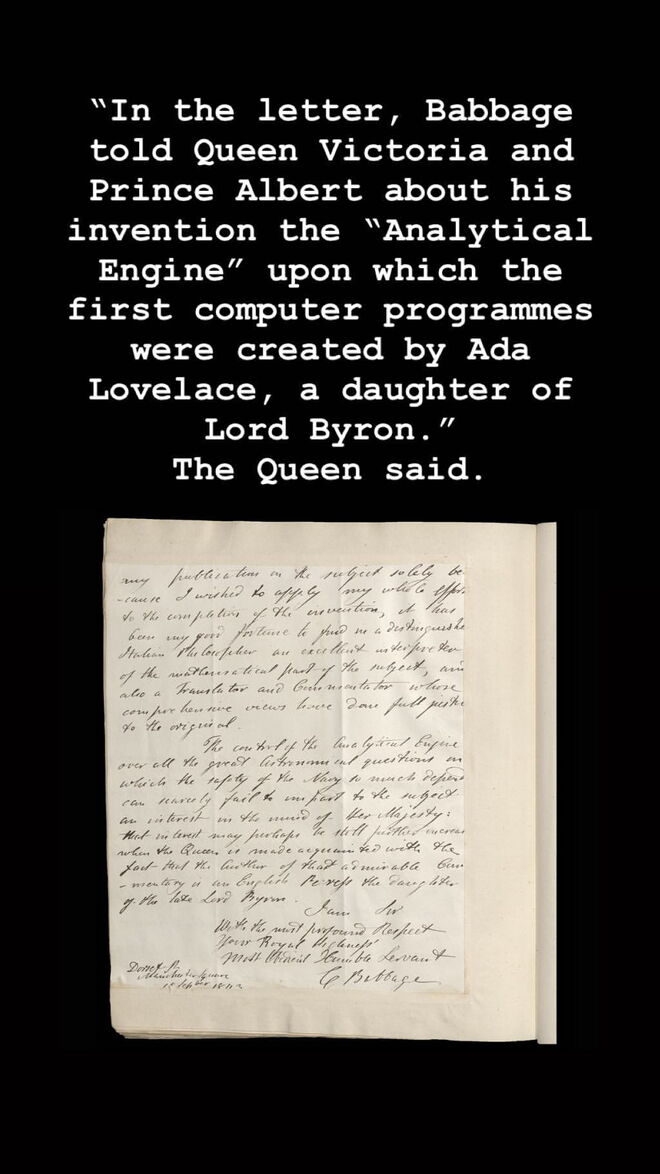 “In the letter, Babbage
told Queen Victoria and
Prince Albert about his
invention the “Analytical
Engine” upon which the
first computer programmes
were created by Ada
Lovelace, a daughter of
Lord Byron.”
The Queen said.
my publication on the subject solely be-
-cause I wished to apply my whole effort
to the completion of the invention, it has
been my good fortune to find in a distinguishe
Italian Philosopher an excellent interpreter
of the mathematical part of the subject, and
also a Translator and Commentator whose
comprehensive views have done full justice
to the original.
The control of the Analytical Engine
over all the great Astronomical questions on
which the safety of the Navy so much depend
can scarcely fail to impart to the subject
an interest in the mind of Her Majesty:
that interest may perhaps be still further increas
when the Queen is made acquainted with the
fact that the Author of that admirable Com
-mentary is an English Peeress the daughter
of the late Lord Byron.
I am Sir
With the most profound Respect
Your Royal Highness'
Most Obedient Humble Servant
C Babbage
Dorset St
Manchester Square
1843